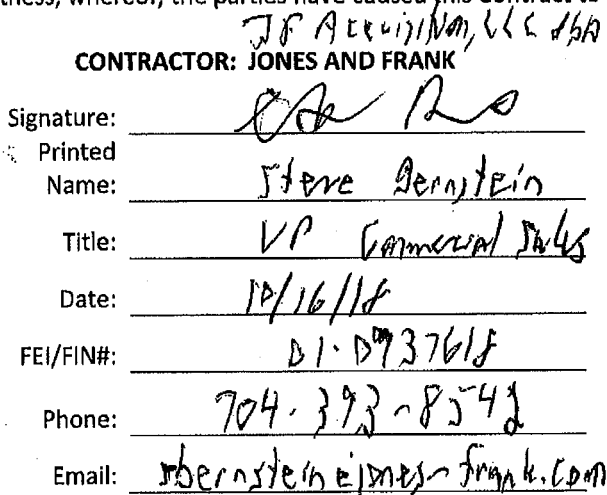 tness, whereof, the parties have caused this Contract to
JF Acquisition, LLC dba
CONTRACTOR: JONES AND FRANK
Signature:
Printed
Name: Steve Bernstein
Title: VP Commercial Sales
Date: 10/16/18
FEI/FIN#: 01-0937618
Phone: 704-393-8542
Email: sbernstein@jones-frank.com